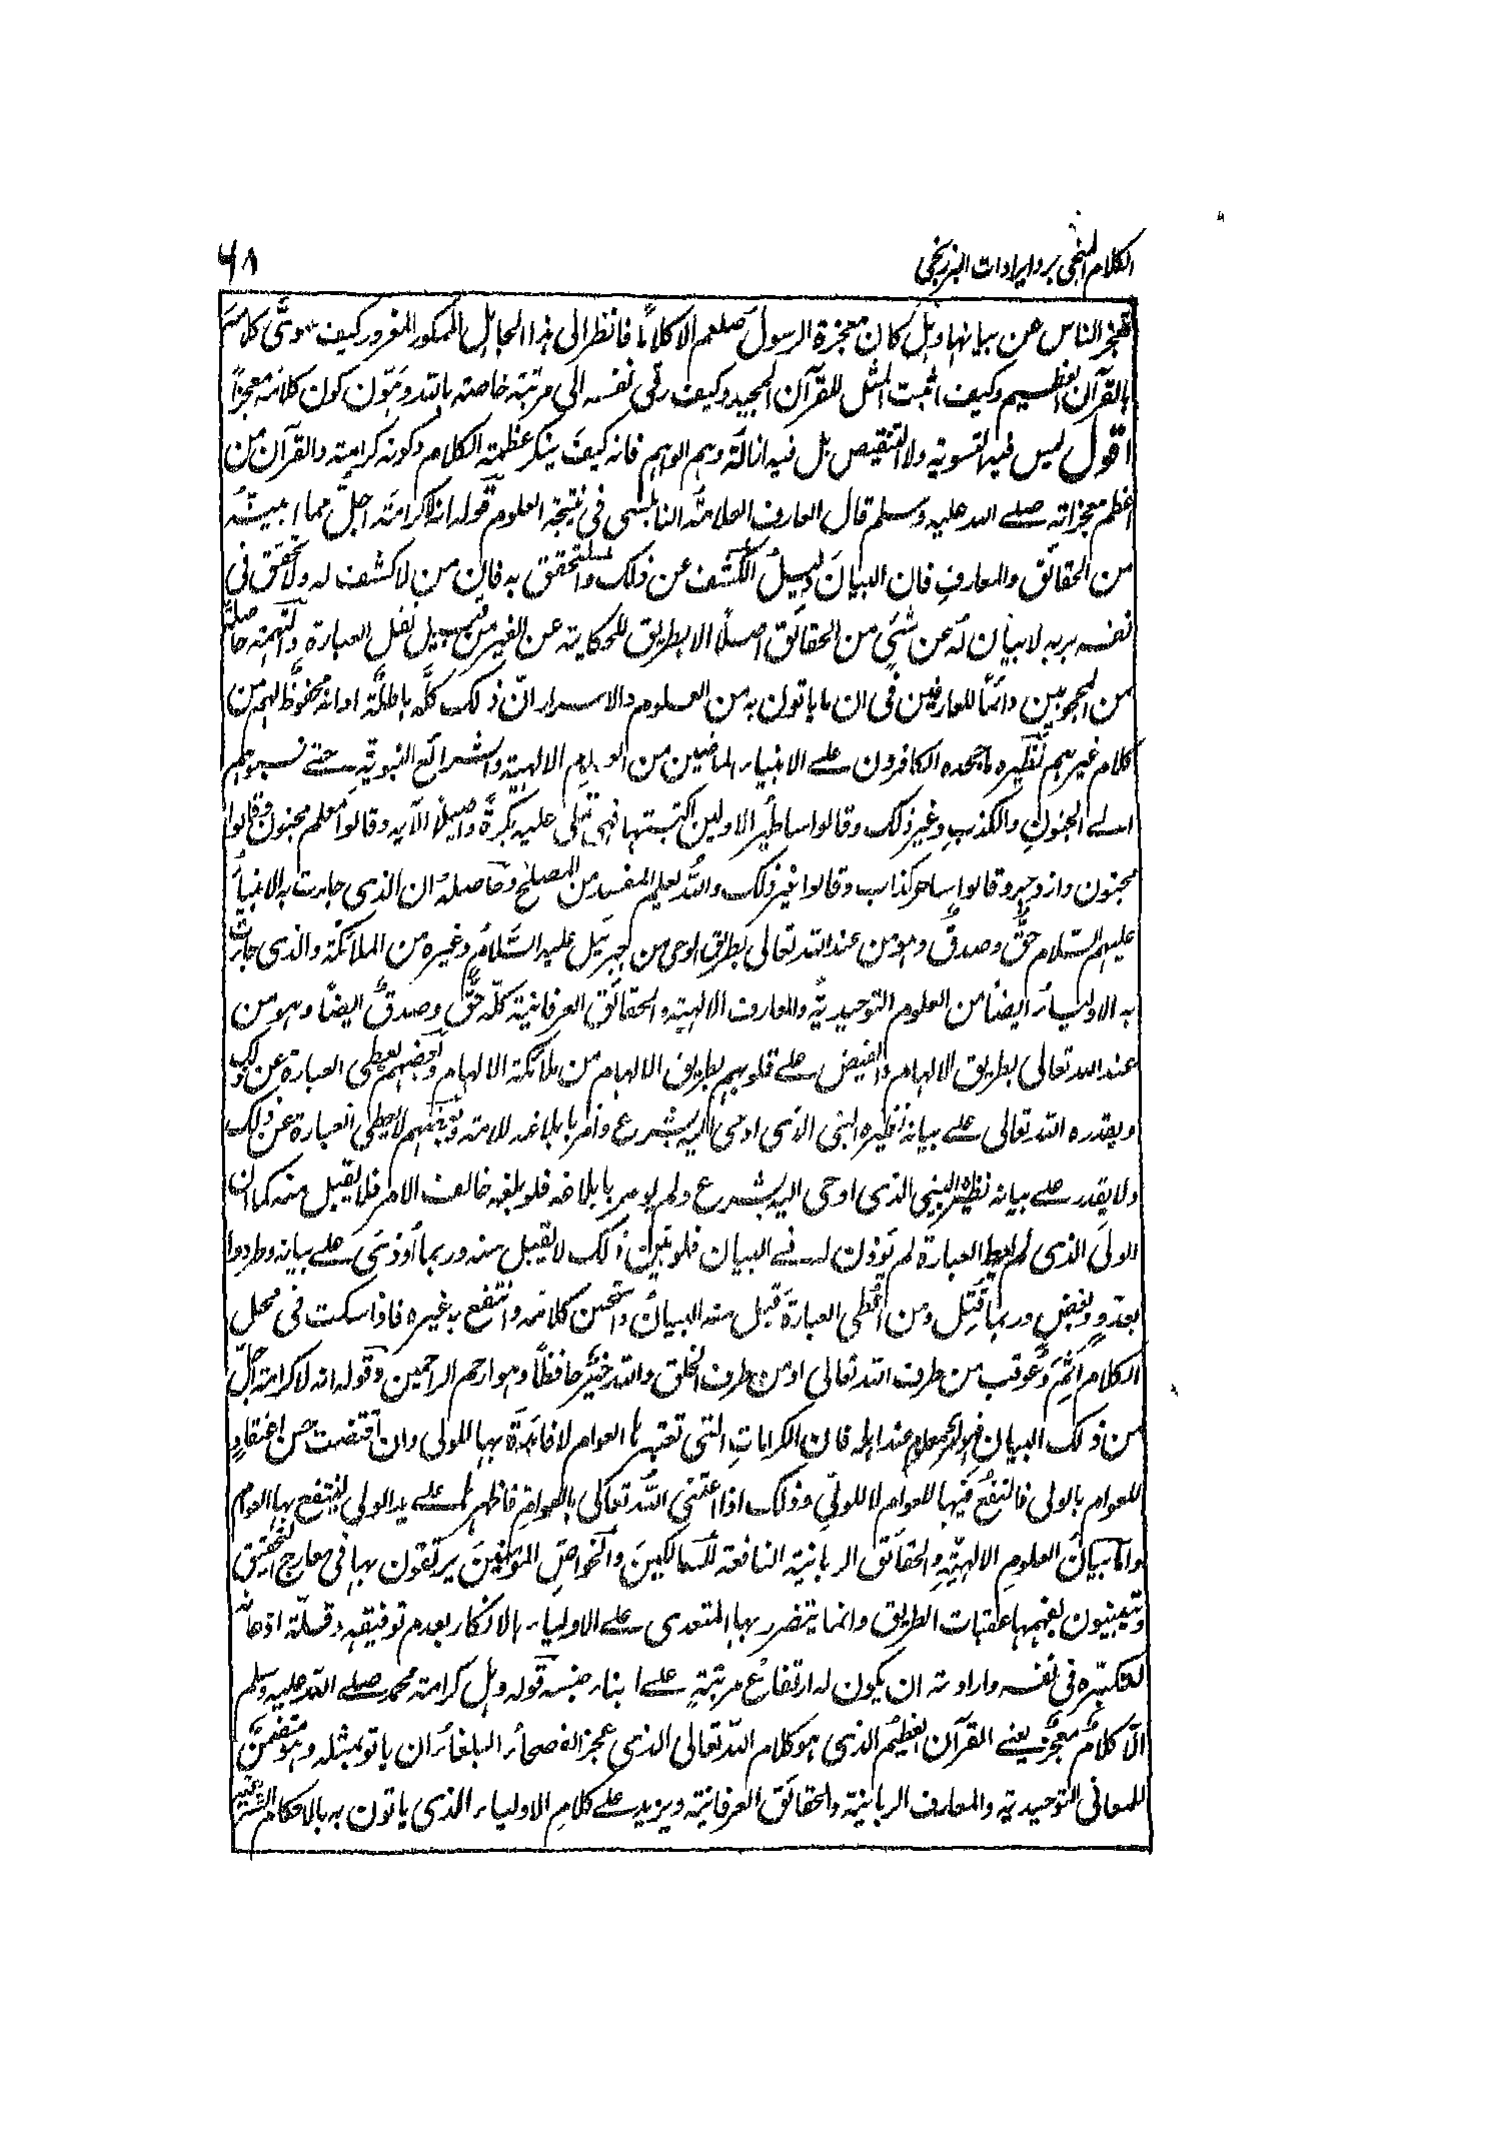 الكلام المنجى برد ايرادات البرزنجى ٦٨
تعجز الناس عن بيانها وهل كان معجزة الرسول صلعم الا كلامًا فانظر الى هذا الجاهل الممكور المغرور كيف سوّى كلامه
بالقرآن العظيم وكيف اثبت المثل للقرآن المجيد وكيف رقى نفسه الى مرتبة خاصته بالله وهوّن كون كلامه معجزًا
اقول ليس فيه التسوية ولا التنقيص بل فيه ازالة وهم الواهم فانه كيف ينكر عظمة الكلام وكونه كرامته والقرآن من
اعظم معجزاته صلے الله عليه وسلم قال العارف العلامة النابلسى فى نتيجة العلوم قوله انه لا كرامة اجلّ مما ابيّنه
من الحقائق والمعارف فان البيان دليل الكشف عن ذلك والتحقق به فان من لا كشف له ولا تحقق فى
نفسه بربه لا بيان له عن شئى من الحقائق اصلًا الا بطريق الحكاية عن الغير من قبيل نقل العبارة والتهمة حاصلة
من المحجوبين دائمًا للعارفين فى ان ما ياتون به من العلوم والاسرار انّ ذلك كلّه باطلة او انه محفوظ لهم من
كلام غيرهم نظيره ما جحده الكافرون علے الانبياء الماضين من العلوم الالهية والشرائع النبوية حتے نسبوهم
الے الجنون والكذب وغير ذلك وقالوا اساطير الاولين اكتتبتها فهى تملى عليه بكرةً واصيلًا الآيه وقالوا معلم مجنون وقالوا
مجنون وازدجر وقالوا ساحر كذاب وقالوا غير ذلك والله يعلم المفسد من المصلح وحاصله ان الذى جاءت به الانبياء
عليهم السلام حقٌّ وصدقٌ وهو من عند الله تعالى بطريق الوحى من جبرئيل عليه السّلام وغيره من الملائكة والذى جاءت
به الاولياء ايضًا من العلوم التوحيدية والمعارف الالهية والحقائق العرفانية كلّه حقٌّ وصدقٌ ايضًا وهو من
عند الله تعالى بطريق الالهام والفيض علے قلوبهم بطريق الالهام من ملائكة الالهام وبعضهم يعطى العبارة عن ذلك
ويقدره الله تعالى علے بيانه نظيره النبى الذى اوحى اليه بشرع وأمر بابلاغه للامته وبعضهم لا يعطى العبارة عن ذلك
ولا يقدر علے بيانه نظيره النبى الذى اوحى اليه بشرع ولم يومر بابلاغه فلو بلغه خالف الامر فلا يقبل منه كما ان
الولى الذى لم يعط العبارة لم يوذن له فے البيان فلو بيّن ذلك لا يقبل منه وربما أوذى علے بيانه وطردوا
بعدو بغض وربما قتل ومن اُعطى العبارة قبل منه البيان واستحسن كلامه وانتفع به غيره فاذا سكت فى محل
الكلام اَثم وعوقب من طرف الله تعالى او من طرف الخلق والله خيرٌ حافظًا وهو ارحم الراحمين وقوله انه لا كرامة اجلّ
من ذلك البيان فهو امر معلوم عند اهله فان الكرامات التى تعتبرها العوام لا فائدة بها للولى وان اقتضت حسن اعتقاد
للعوام بالولى فالنفع فيها للعوام لا للولّى وذلك اذا اعتنى الله تعالى بالعوام فاظهرها علے يد الولى لينتفع بها العوام
واما بيان العلوم الالهيّة والحقائق الربانية النافعة للسالكين والخواص الموفقين يرتقون بها فى معارج التحقيق
وتبينون بفهمها عقبات الطريق وانما يتضرر بها المتعدى علے الاولياء بالانكار بعدم توفيقه وقلّة اذعانه
لتكبّره فى نفسه وارادته ان يكون له ارتفاع مرتبةٍ علے ابناء جنسه قوله وهل كرامة محمد صلے الله عليه وسلم
الّا كلام معجز يعنے القرآن العظيم الذى هو كلام الله تعالى الذى عجز الفصحاء البلغاء ان ياتو بمثله وهو متضمن
للمعانى التوحيدية والمعارف الربانية والحقائق العرفانية ويزيد علے كلام الاولياء الذى ياتون به بالاحكام الشرعية